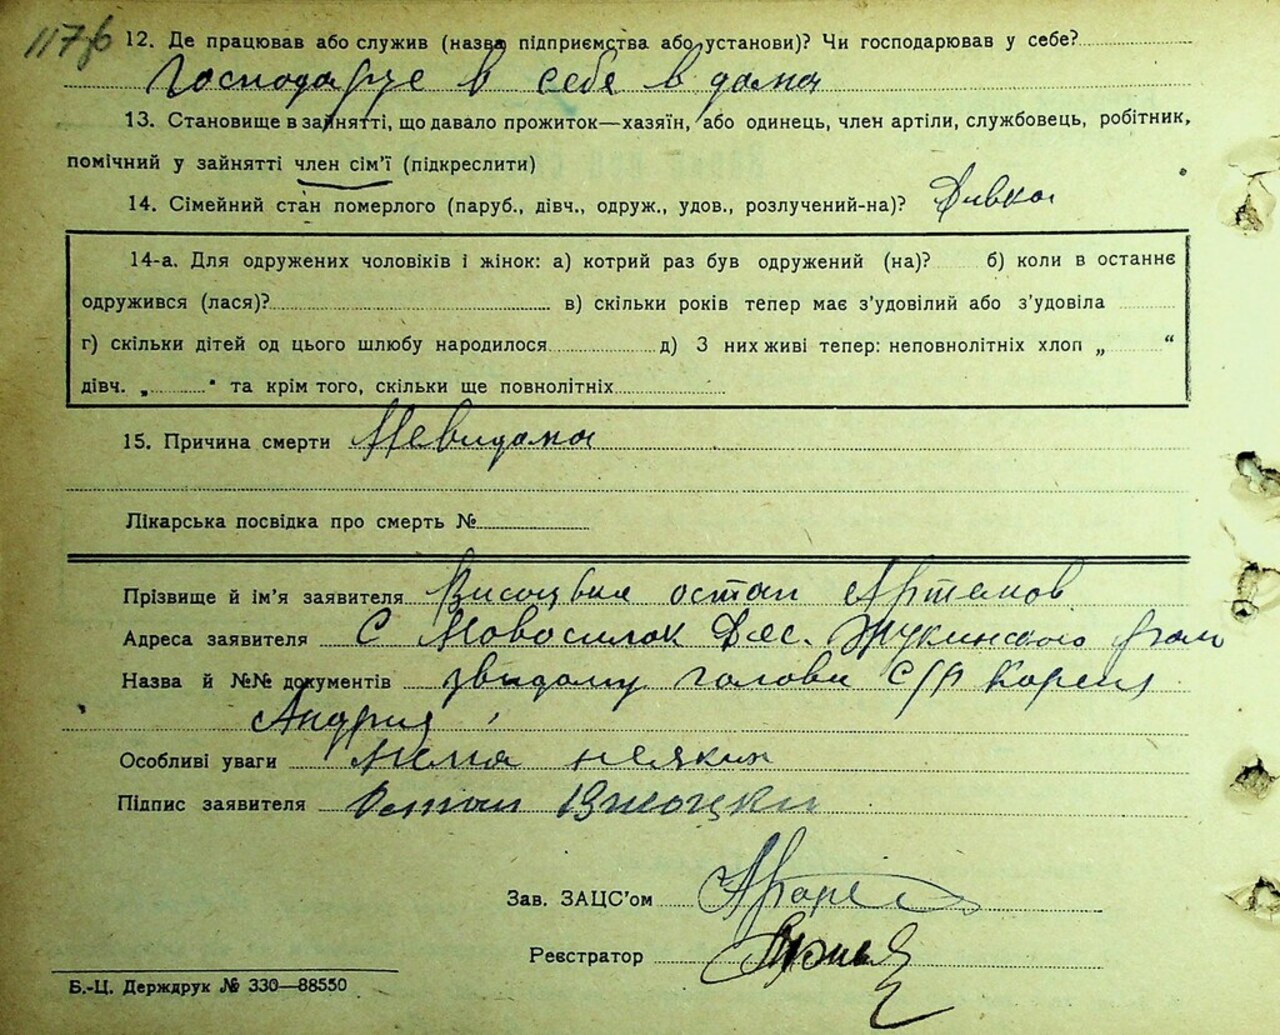 117/б 12. Де працював або служив (назва підприємства або установи)? Чи господарював у себе?
Господарує в себе в дома
13. Становище в зайнятті, що давало прожиток—хазяїн, або одинець, член артіли, службовець, робітник,
помічний у зайнятті член сім'ї (підкреслити)
14. Сімейний стан померлого (паруб., дівч., одруж., удов., розлучений-на)? Дивка
14-а. Для одружених чоловіків і жінок: а) котрий раз був одружений (на)? б) коли в останнє
одружився (лася)? в) скільки років тепер має з'удовілий або з'удовіла
г) скільки дітей од цього шлюбу народилося д) З них живі тепер: неповнолітніх хлоп „ “
дівч. „ " та крім того, скільки ще повнолітніх
15. Причина смерти Невидома
Лікарська посвідка про смерть №
Прізвище й ім'я заявителя остап Артемов
Адреса заявителя С Новосилок Дес. Жукинского
Назва й №№ документів звидому голови С/Р
Андрия
Особливі уваги нема неяких
Підпис заявителя Остап Висоцки
Зав. ЗАЦС'ом
Реєстратор
Б.-Ц. Держдрук № 330—88550